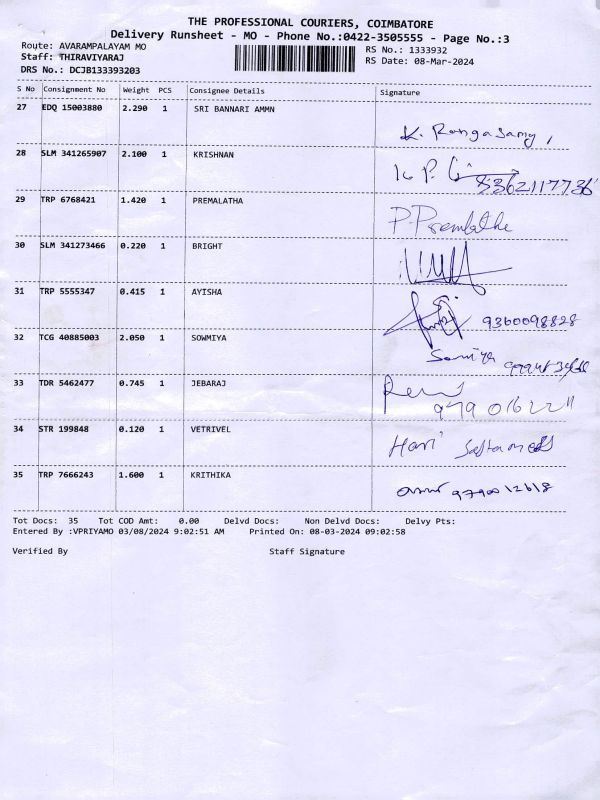 THE PROFESSIONAL COURIERS, COIMBATORE
Delivery Runsheet - MO - Phone No.:0422-3505555 - Page No.:3
Route: AVARAMPALAYAM MO
RS No.: 1333932
Staff: THIRAVIYARAJ
RS Date: 08-Mar-2024
DRS No.: DCJB133393203
S No Consignment No Weight PCS Consignee Details Signature
27 EDQ 15003880 2.290 1 SRI BANNARI AMMN
K. Rangasamy,
28 SLM 341265907 2.100 1 KRISHNAN
K P.
29 TRP 6768421 1.420 1 PREMALATHA
P. Premlathe
30 SLM 341273466 0.220 1 BRIGHT
31 TRP 5555347 0.415 1 AYISHA
9360098828
32 TCG 40885003 2.050 1 SOWMIYA
33 TDR 5462477 0.745 1 JEBARAJ
34 STR 199848 0.120 1 VETRIVEL
Hari
35 TRP 7666243 1.600 1 KRITHIKA
Tot Docs: 35 Tot COD Amt: 0.00 Delvd Docs: Non Delvd Docs: Delvy Pts:
Entered By :VPRIYAMO 03/08/2024 9:02:51 AM Printed On: 08-03-2024 09:02:58
Verified By Staff Signature